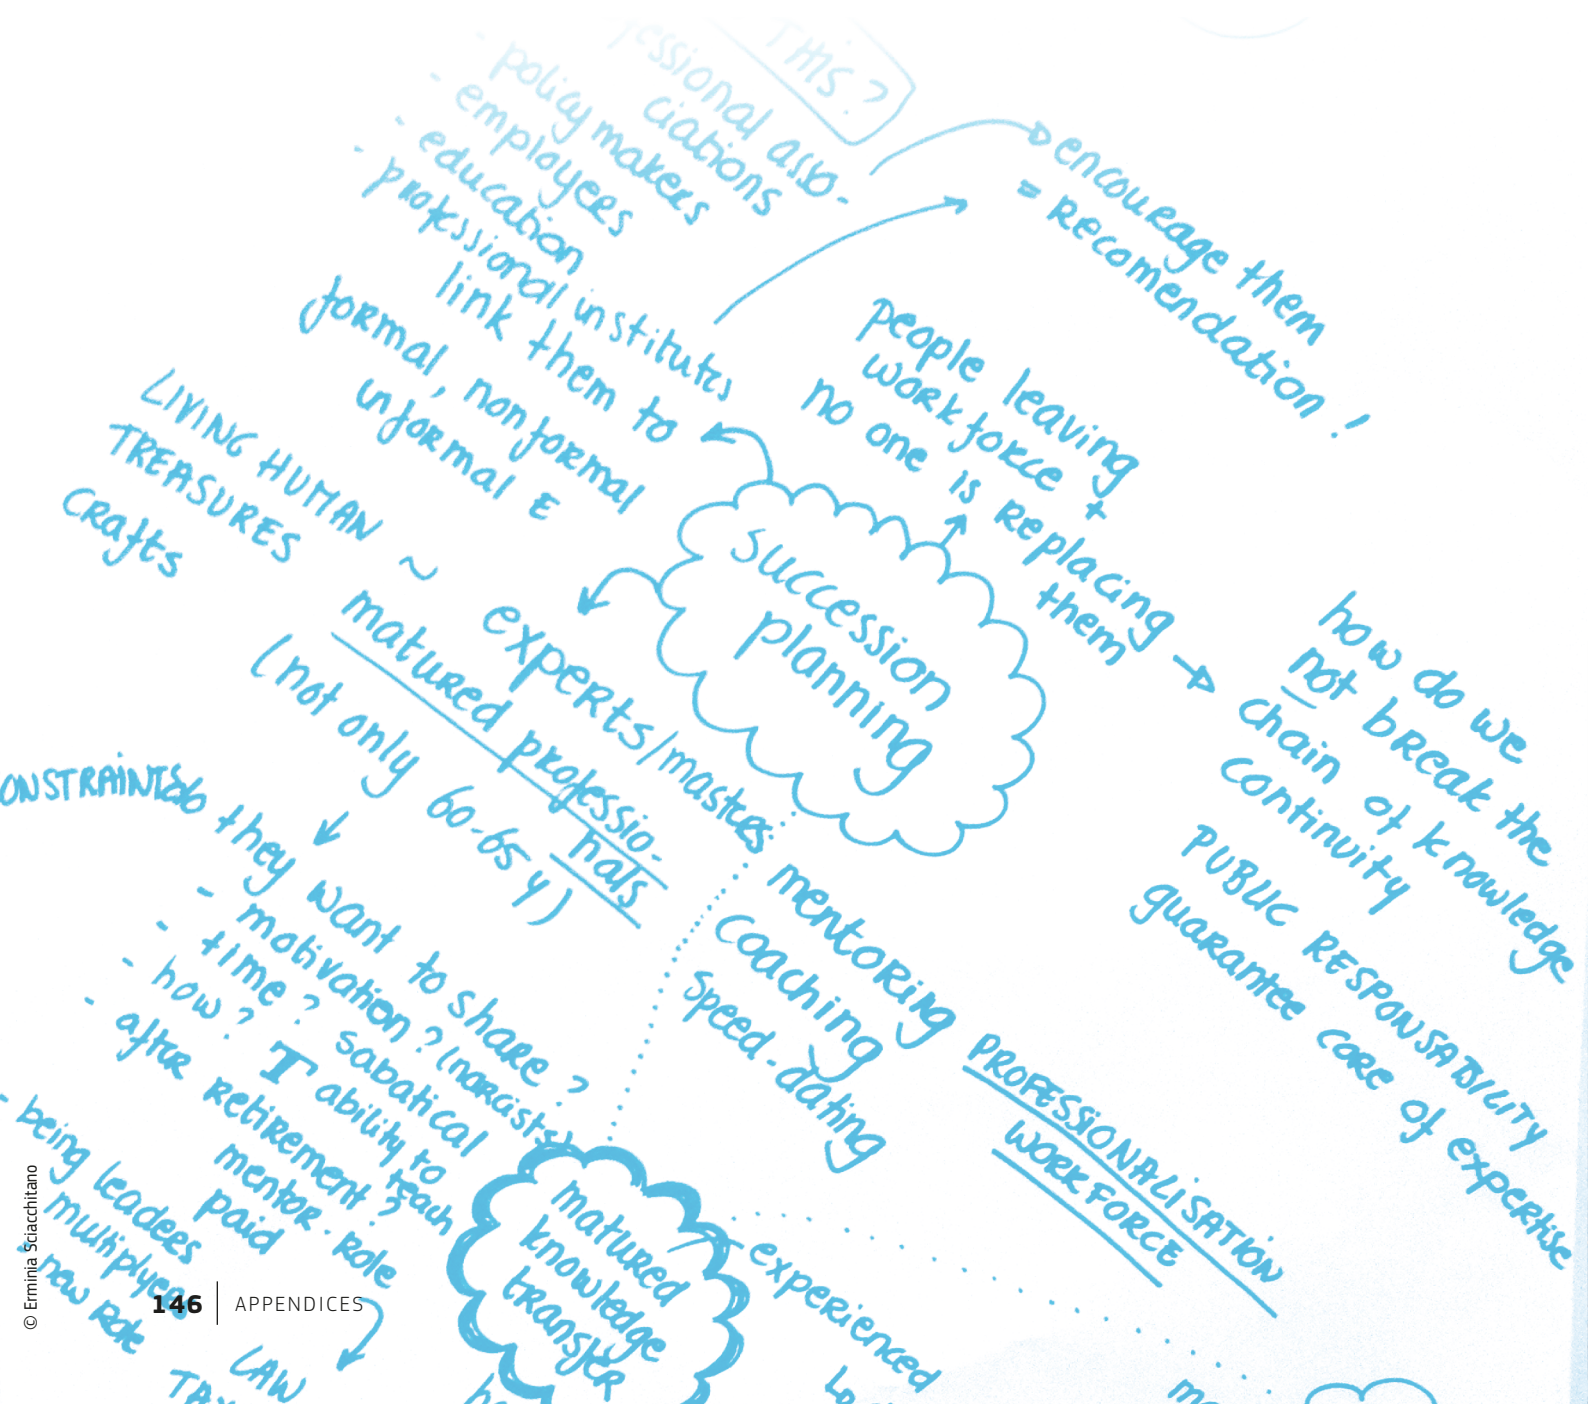 THIS?
essional asso-
ciations
- policy makers
- employers
- education
- professional institutes
link them to
formal, non formal
informal E
encourage them
= RECOMENDATION!
people leaving
workforce +
no one is replacing
them
how do we
not break the
chain of knowledge
continuity
PUBLIC RESPONSABILITY
guarantee core of expertise
succession
planning
LIVING HUMAN
TREASURES
CRAfts
~ experts/masters
matured professio-
nals
(not only 60-65 y)
ONSTRAINTS
do they want to share?
- motivation? (narcists)
- time? sabatical
- how? ability to
teach
- after retirement?
mentor-role
paid
- being leaders
multiplyers
- new Role
LAW
mentoring
coaching
speed-dating
PROFESSIONALISATION
WORKFORCE
matured
knowledge
transfer
experienced
© Erminia Sciacchitano
146 APPENDICES